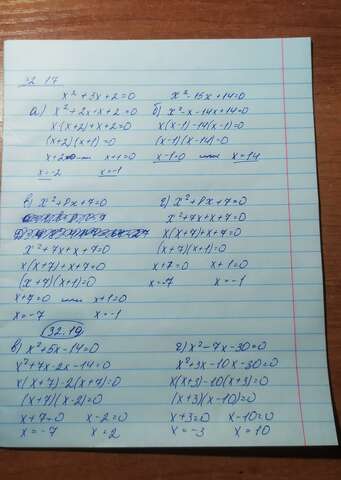 32.17
x² + 3x + 2 = 0
а) x² + 2x + x + 2 = 0
x(x+2) + x+2 = 0
(x+2)(x+1) = 0
x+2=0 или x+1=0
x = -2 x = -1
x² - 15x + 14 = 0
б) x² - x - 14x + 14 = 0
x(x-1) - 14(x-1) = 0
(x-1)(x-14) = 0
x-1=0 или x = 14
в) x² + 8x + 7 = 0
x² + 7x + x + 7 = 0
x(x+7) + x+7 = 0
(x+7)(x+1) = 0
x+7=0 или x+1=0
x = -7 x = -1
г) x² + 8x + 7 = 0
x² + 7x + x + 7 = 0
x(x+7) + x+7 = 0
(x+7)(x+1) = 0
x+7=0 x+1=0
x = -7 x = -1
32.19
в) x² + 5x - 14 = 0
x² + 7x - 2x - 14 = 0
x(x+7) - 2(x+7) = 0
(x+7)(x-2) = 0
x+7=0 x-2=0
x = -7 x = 2
г) x² - 7x - 30 = 0
x² + 3x - 10x - 30 = 0
x(x+3) - 10(x+3) = 0
(x+3)(x-10) = 0
x+3=0 x-10=0
x = -3 x = 10